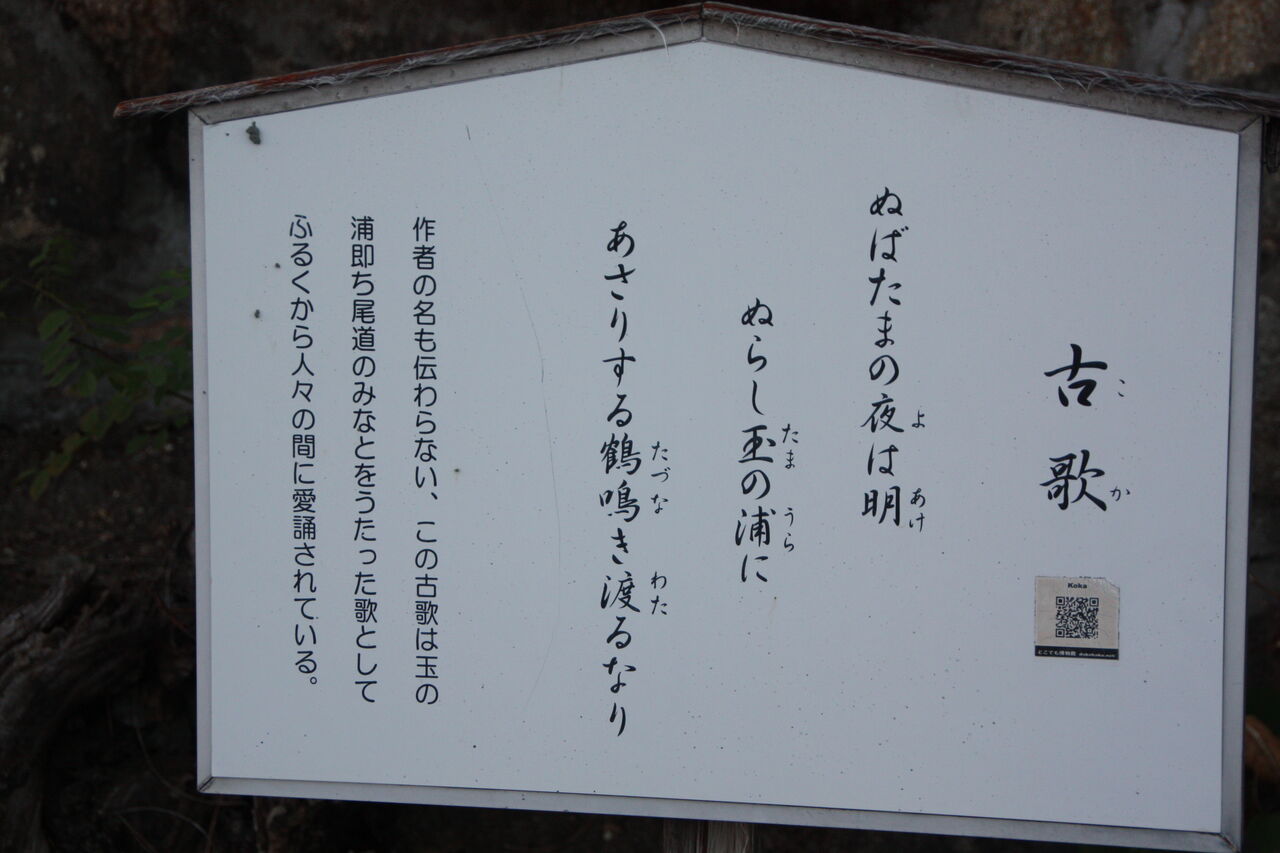 古歌
こ
か
Koka
どこでも博物館
ぬばたまの夜は明
よ
あけ
ぬらし玉の浦に
たま
うら
あさりする鶴鳴き渡るなり
たづな
わた
作者の名も伝わらない、この古歌は玉の
浦即ち尾道のみなとをうたった歌として
ふるくから人々の間に愛誦されている。